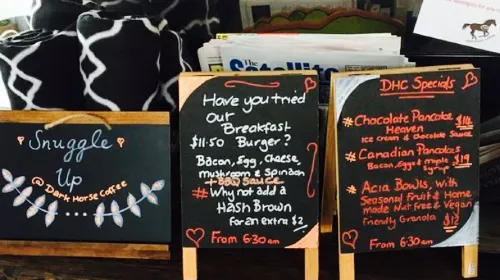 Snuggle
Up
@ Dark Horse Coffee
The
Satellite
Have you tried
Our
Breakfast
$11.50 Burger?
Bacon, Egg, Cheese,
Mushroom & Spinach
+ BBQ Sauce
# Why not add a
Hash Brown
for an extra $2
From 6.30am
DHC Specials
# Chocolate Pancake $14
Heaven
Ice cream & Chocolate Sauce
# Canadian Pancakes
Bacon, Eggs & Maple $19
Syrup
# Acia Bowls, With
Seasonal Fruit & Home
made Nut Free & Vegan
Friendly Granola $12
From 6.30am